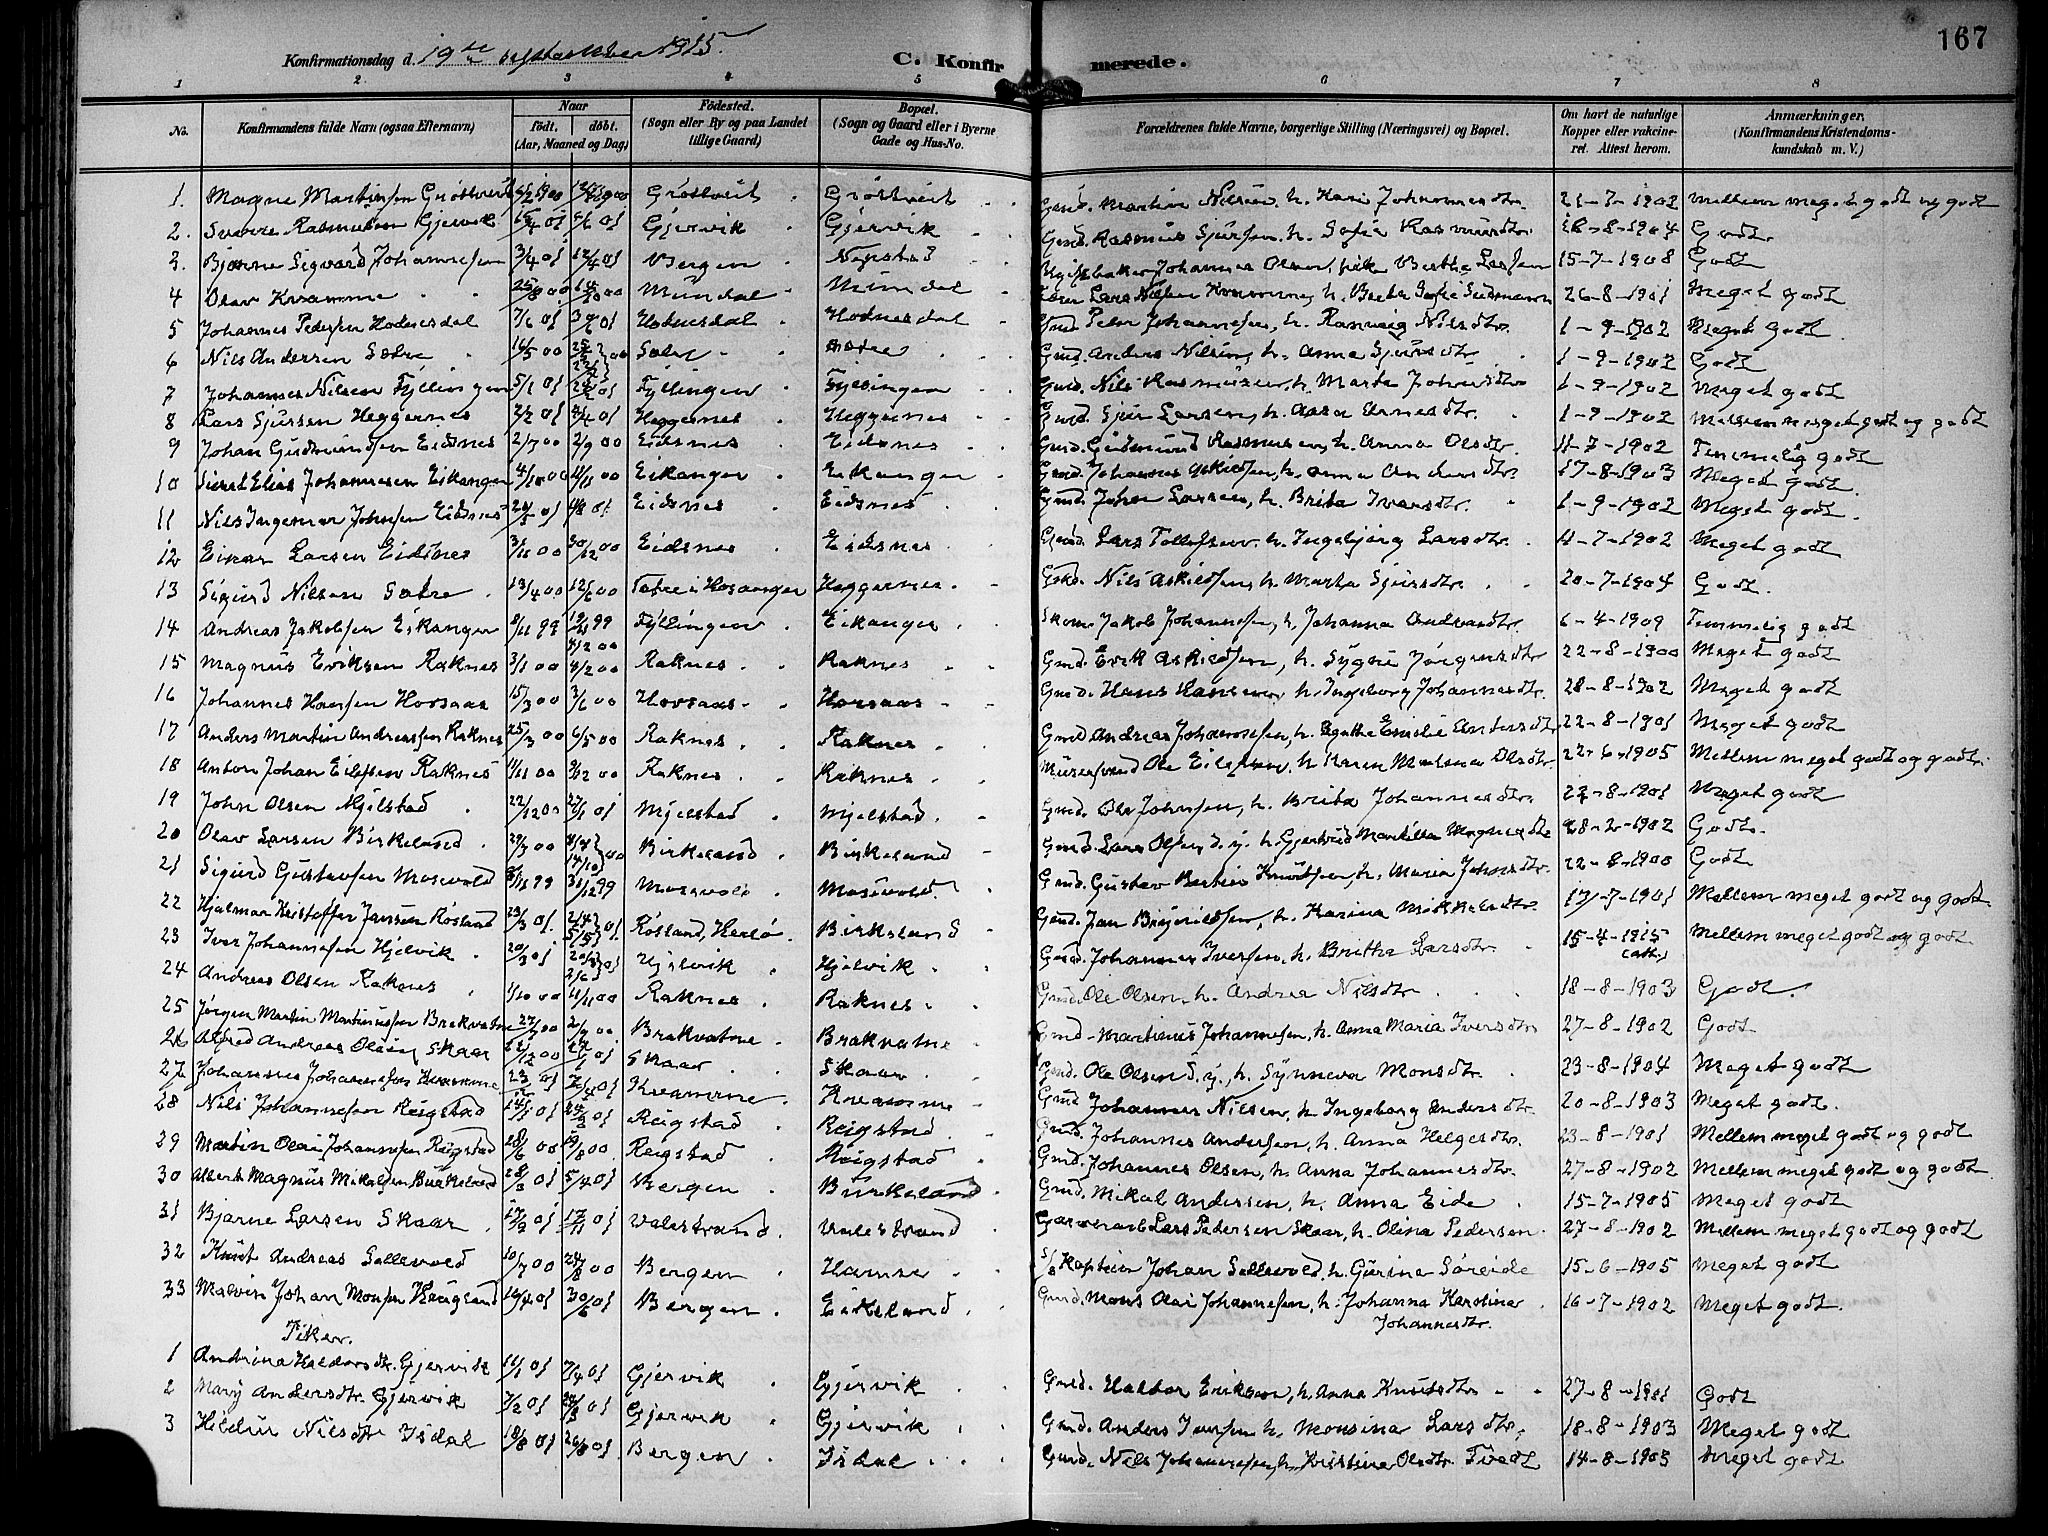 167
Konfirmationsdag d. 19de september 1915. C. Konfirmerede.
1 2 3 4 5 6 7 8
No. Konfirmandens fulde Navn (ogsaa Efternavn) Naar födt. döbt. (Aar, Maaned og Dag) Födested. (Sogn eller By og paa Landet tillige Gaard) Bopæl. (Sogn og Gaard eller i Byerne Gade og Hus-No. Forældrenes fulde Navne, borgerlige Stilling (Næringsvei) og Bopæl. Om havt de naturlige Kopper eller vakcineret. Attest herom. Anmærkninger. (Konfirmandens Kristendomskundskab m. V.)
1. Magne Martinsen Gröttveit Gröttveit Gröttveit Gmd. Martin Nilsen, h. Kari Johannesdtr. 21-7-1902 Mellem meget godt og godt
2. Sverre Rasmusen Gjervik 4/6 01 Gjervik Gjervik Gmd. Rasmus Sjursen, h. Sofie Rasmusdtr. 18-8-1904 Godt
3. Bjarne Sigvard Johannesen 3/4 01 12/4 01 Bergen Johannes Olsen, Berthe Larsen 15-7-1908 Godt
4 Olav Kvamme 25/8 00 Mundal Mundal Lars Nilsen Kvamme, h. Berta Sofie 26-8-1901 Meget godt
5 Johannes Pedersen Hodnesdal 7/6 01 Hodnesdal Hodnesdal Gmd. Peder Johannesen, h. Rannveig Nilsdtr. 1-9-1902 Meget godt
6 Nils Andersen Sætre 16/5 00 Sætre Sætre Gmd. Anders Nilsen, h. Anna Sjursdtr. 1-9-1902 Godt
7 Johannes Nilsen Fyllingen 5/1 01 Fyllingen Fyllingen Gmd. Nils Rasmussen, h. Marta 1-9-1902 Meget godt
8 Lars Sjursen Heggernes Heggernes Heggernes Gmd. Sjur Larsen, h. Aasa Arnesdtr. 1-9-1902 Mellem meget godt og godt
9 Johan Gudmundsen Eidsnes 2/7 00 2/9 00 Eidsnes Eidsnes Gmd. Gudmund Rasmusen, h. Anna Olsdtr. 11-7-1902 Temmelig godt
10 Elias Johannesen Eikanger 4/10 00 11/11 00 Eikanger Eikanger Gmd. Johannes Askildsen, h. Anna Andersdtr. 17-8-1903 Meget godt.
11 Nils Ingemar Johnsen Eidsnes Eidsnes Eidsnes Gmd. John Larsen, h. Brita Iversdtr. 1-9-1902 Meget godt.
12 Einar Larsen Eidsnes 3/11 00 30/12 00 Eidsnes Eidsnes Gmd. Lars Tollefsen, h. Ingebjörg Larsdtr. 11-7-1902 Meget godt
13 Sigurd Nilsen Sætre 13/4 00 12/6 00 Sætre i Hosanger Heggernes Nils Askildsen, h. Marta Sjursdtr. 20-7-1904 Godt.
14 Andreas Jakobsen Eikanger 8/11 99 19/11 99 Fyllingen Eikanger Skom. Jakob Johannesen, h. Johanna Andreasdtr. 6-4-1909 Temmelig godt
15 Magnus Eriksen Raknes 3/1 00 4/2 00 Raknes Raknes Gmd. Erik Askildsen, h. Sygni Jörgensdtr 22-8-1900 Meget godt
16 Johannes Hansen Horsaas 15/3 00 3/6 00 Horsaas Horsaas Gmd. Hans Hansen, h. Ingeborg Johannesdtr. 28-8-1902 Meget godt
17 Anders Martin Andreassen Raknes 25/3 00 6/5 00 Raknes Raknes Gmd. Andreas Johannesen, h. Agathe Emilie Andersdtr. 22-8-1901 Meget godt
18 Anton Johan Eilefsen Raknes 11/11 00 9/12 00 Raknes Raknes Ole Eilefsen, h. Karen Malena Olsdtr. 22-6-1905 Mellem meget godt og godt.
19 John Olsen Mjelstad 22/12 00 27/1 01 Mjelstad Mjelstad Gmd. Ole Johnsen, h. Brita Johannesdtr. 22-8-1901 Meget godt
20 Olav Larsen Birkeland 29/3 00 Birkeland Birkeland Gmd. Lars Olsen d. y. h. Gjertrud Martilla Magnesdtr 28-2-1902 Godt.
21 Sigurd Gustavsen Mosevold 31/12 99 Mosevold Mosevold. Gmd. Gustav Bertin Knutsen, h. Maria Johnsdtr. 22-8-1900 Godt
22 Hjalmar Kristoffer Jansen Rösland 23/3 01. Rösland, Herlö. Birkeland Gmd. Jan Brynildsen, h. Karina Mikkelsdtr. 17-7-1901 Mellem meget godt og godt
23 Iver Johannesen Hjelvik 20/3 01 Hjelvik Hjelvik Gmd. Johannes Iversen, h. Britha Larsdtr. 15-4-1915 (att.) Mellem meget godt og godt
24 Andreas Olsen Raknes 1/10 00 11/11 00 Raknes Raknes Gmd. Ole Olsen, h. Andrea Nilsdtr 18-8-1903 Godt.
25 Jörgen Martin Martinussen Brakvatne 27/7 00 2/9 00 Brakvatne Brakvatne Gmd. Martinus Johannesen, h. Anna Maria Iversdtr 27-8-1902 Godt
26 Alfred Andreas Olsen Skaar Skaar Skaar Gmd. Ole Olsen d. y., h. Synneva Monsdtr. 23-8-1904 Meget godt
27 Johannes Johannesen Kvamme Kvamme Kvamme Gmd Johannes Nilsen, h. Ingeborg Andersdtr. 20-8-1903 Meget godt.
28 Nils Johannesen Reigstad 14/1 01 24/2 01 Reigstad Reigstad Gmd. Johannes Andersen, h. Anna Helgesdtr. 23-8-1901 Mellem meget godt og godt
29 Martin Olai Johannesen Reigstad 28/6 00 19/8 00 Reigstad Reigstad Gmd. Johannes Olsen, h. Anna Johannesdtr. 27-8-1902 Mellem meget godt og godt
30 Albert Magnus Mikalsen Birkeland 28/3 01 5/4 01 Bergen Birkeland. Gmd. Mikal Andersen, h. Anna Eide 15-7-1905 Meget godt
31 Bjarne Larsen Skaar 17/9 01 17/11 01 Valestrand. Valestrand Garverarb Lars Pedersen Skaar, h. Olina Pedersen 27-8-1902 Mellem meget godt og godt
32 Knut Andreas Sellevold 10/7 00 Bergen Hamre Kaptein Johan Sellevold, h. Gurina Söreide 15-6-1905 Meget godt
33 Malvin Johan Monsen Haugland 19/4 01 30/6 01 Bergen Eikeland. Gmd. Mons Olai Johannesen, h. Johanna Karolina Johannesdtr. 16-7-1902 Meget godt.
Piker.
1 Andrina Haldorsdtr. Gjervik 11/1 01 7/4 01 Gjervik Gjervik Gmd. Haldor Eriksen, h. Anna Knutsdtr 27-8-1901 Godt
2 Mary Andersdtr. Gjervik 7/2 01 Gjervik Gjervik Gmd. Anders Iversen h. Monsina Larsdtr. 18-8-1903 Meget godt
3 Hildur Nilsdtr Isdal 18/8 01 26/8 01 Bergen Isdal Gmd. Nils Johannesen, h. Kristine Olsdtr. Tvedt 14-8-1905 Meget godt